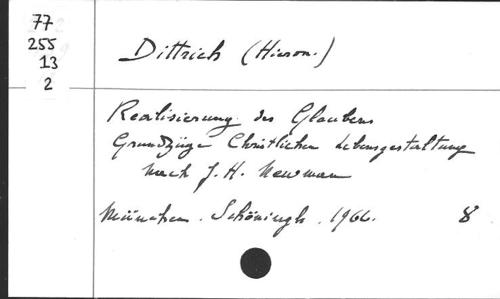 77
255
13
2
Dittrich (Hieron.)
Realisierung des Glaubens
Grundzüge Christlichen Lebensgestaltung
nach J. H. Newman
München. Schöningh. 1966. 8